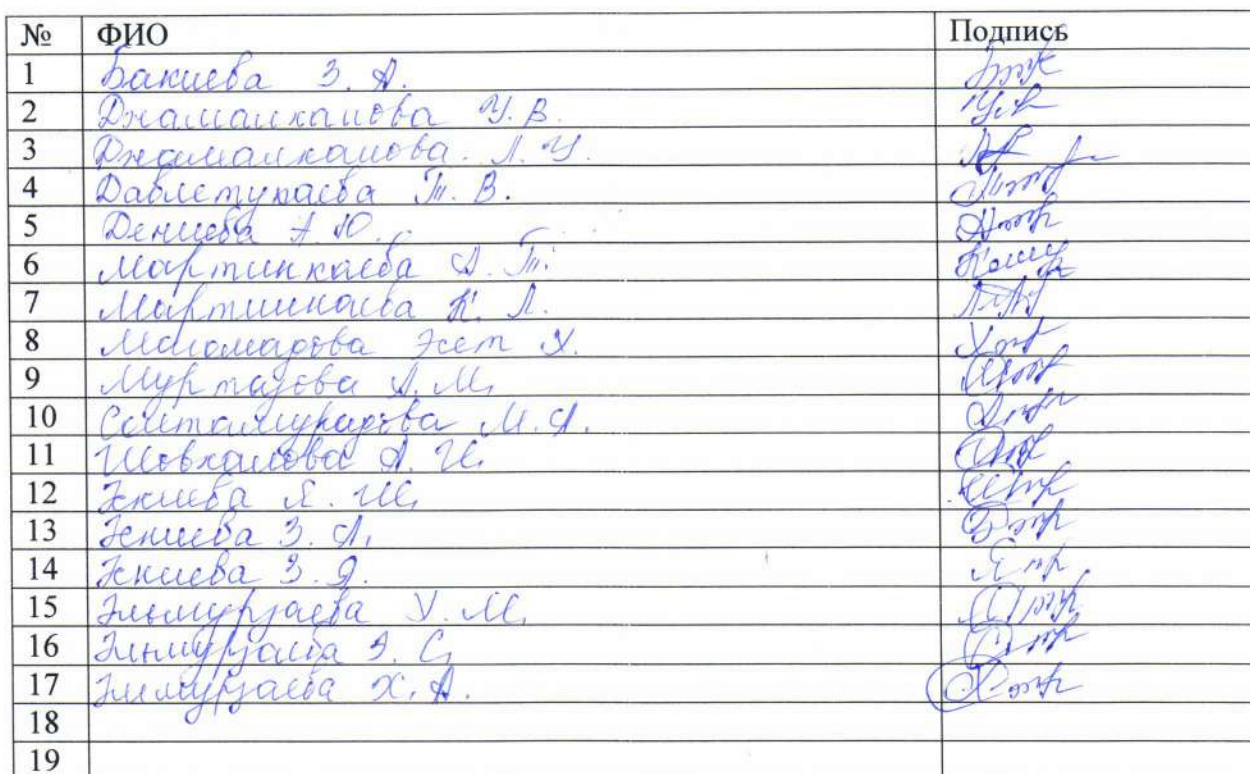 № ФИО Подпись
1 Бакиева З. А.
2 Джамалханова У. В.
3 Джамалханова. Л. У.
4 Давлетукаева Т. В.
5 Дениева А. Ю.
6 Мартинкаева А. Т.
7 Мартинкаева К. Л.
8 Магомадова Эсет Х.
9 Муртазова А. М.
10 Саитамурадова М. А.
11 Шовхалова А. Ш.
12 Экиева Л. Ш.
13 Экиева З. А.
14 Экиева З. Я.
15 Эльмурзаева У. М.
16 Эльмурзаева Э. С.
17 Эльмурзаева Х. А.
18
19